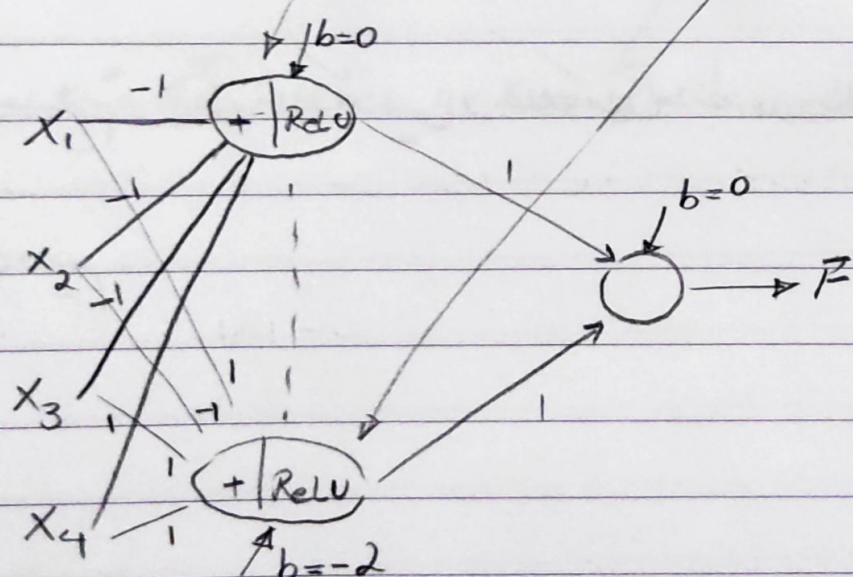 b=0
-1
X1
+ ReLU
-1
1
b=0
X2
-1
F
1
X3
-1
1
1
1
+ ReLU
X4
1
b=-2